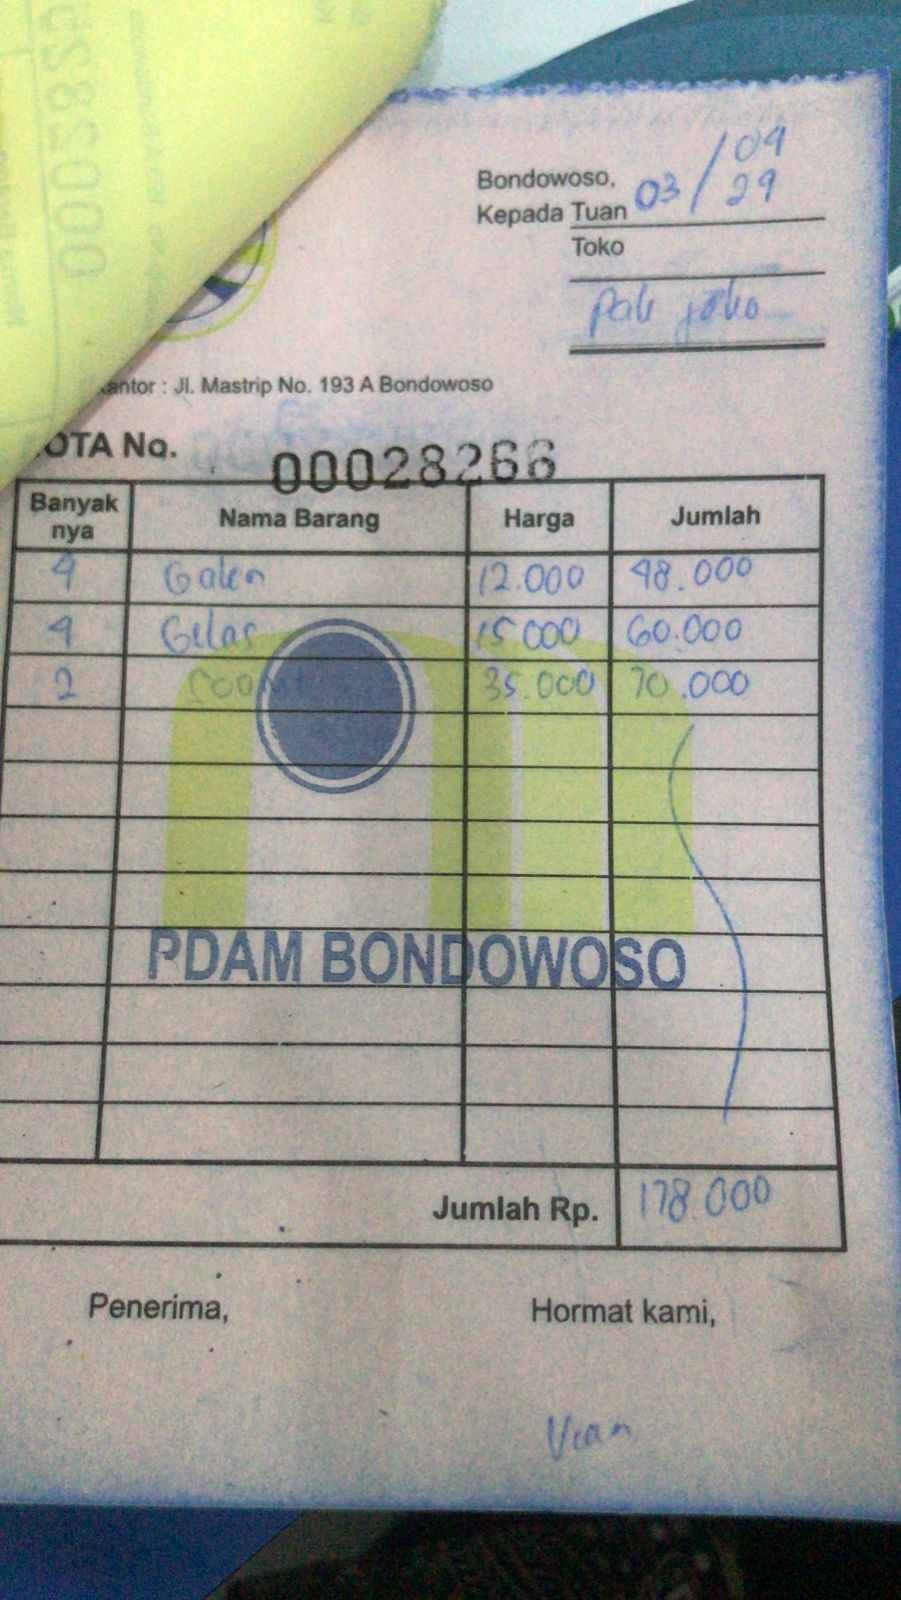 Bondowoso, 03/04
29
Kepada Tuan
Toko
Pak Joko
Kantor : Jl. Mastrip No. 193 A Bondowoso
NOTA No. 00028266
Banyak nya Nama Barang Harga Jumlah
4 Galon 12.000 48.000
4 Gelas 15.000 60.000
2 35.000 70.000
PDAM BONDOWOSO
Jumlah Rp. 178.000
Penerima, Hormat kami,